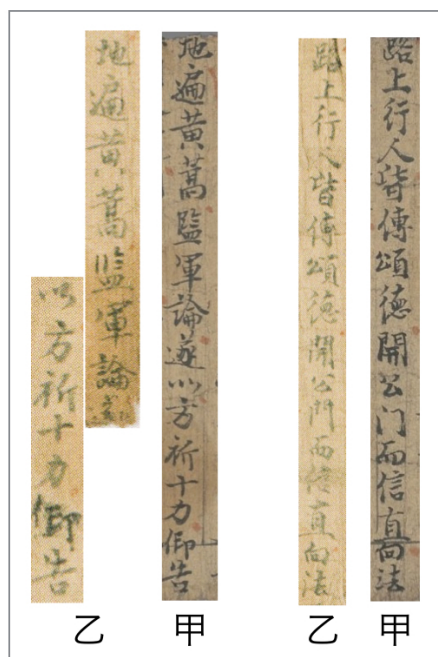 路上行人皆傳頌德開公门而信直向法
甲
路上行人皆傳頌德開公門而信直向法
乙
地遍黄蒿監軍論遂以方祈十力仰告
甲
地遍黄蒿監軍論遂
以方祈十力仰告
乙